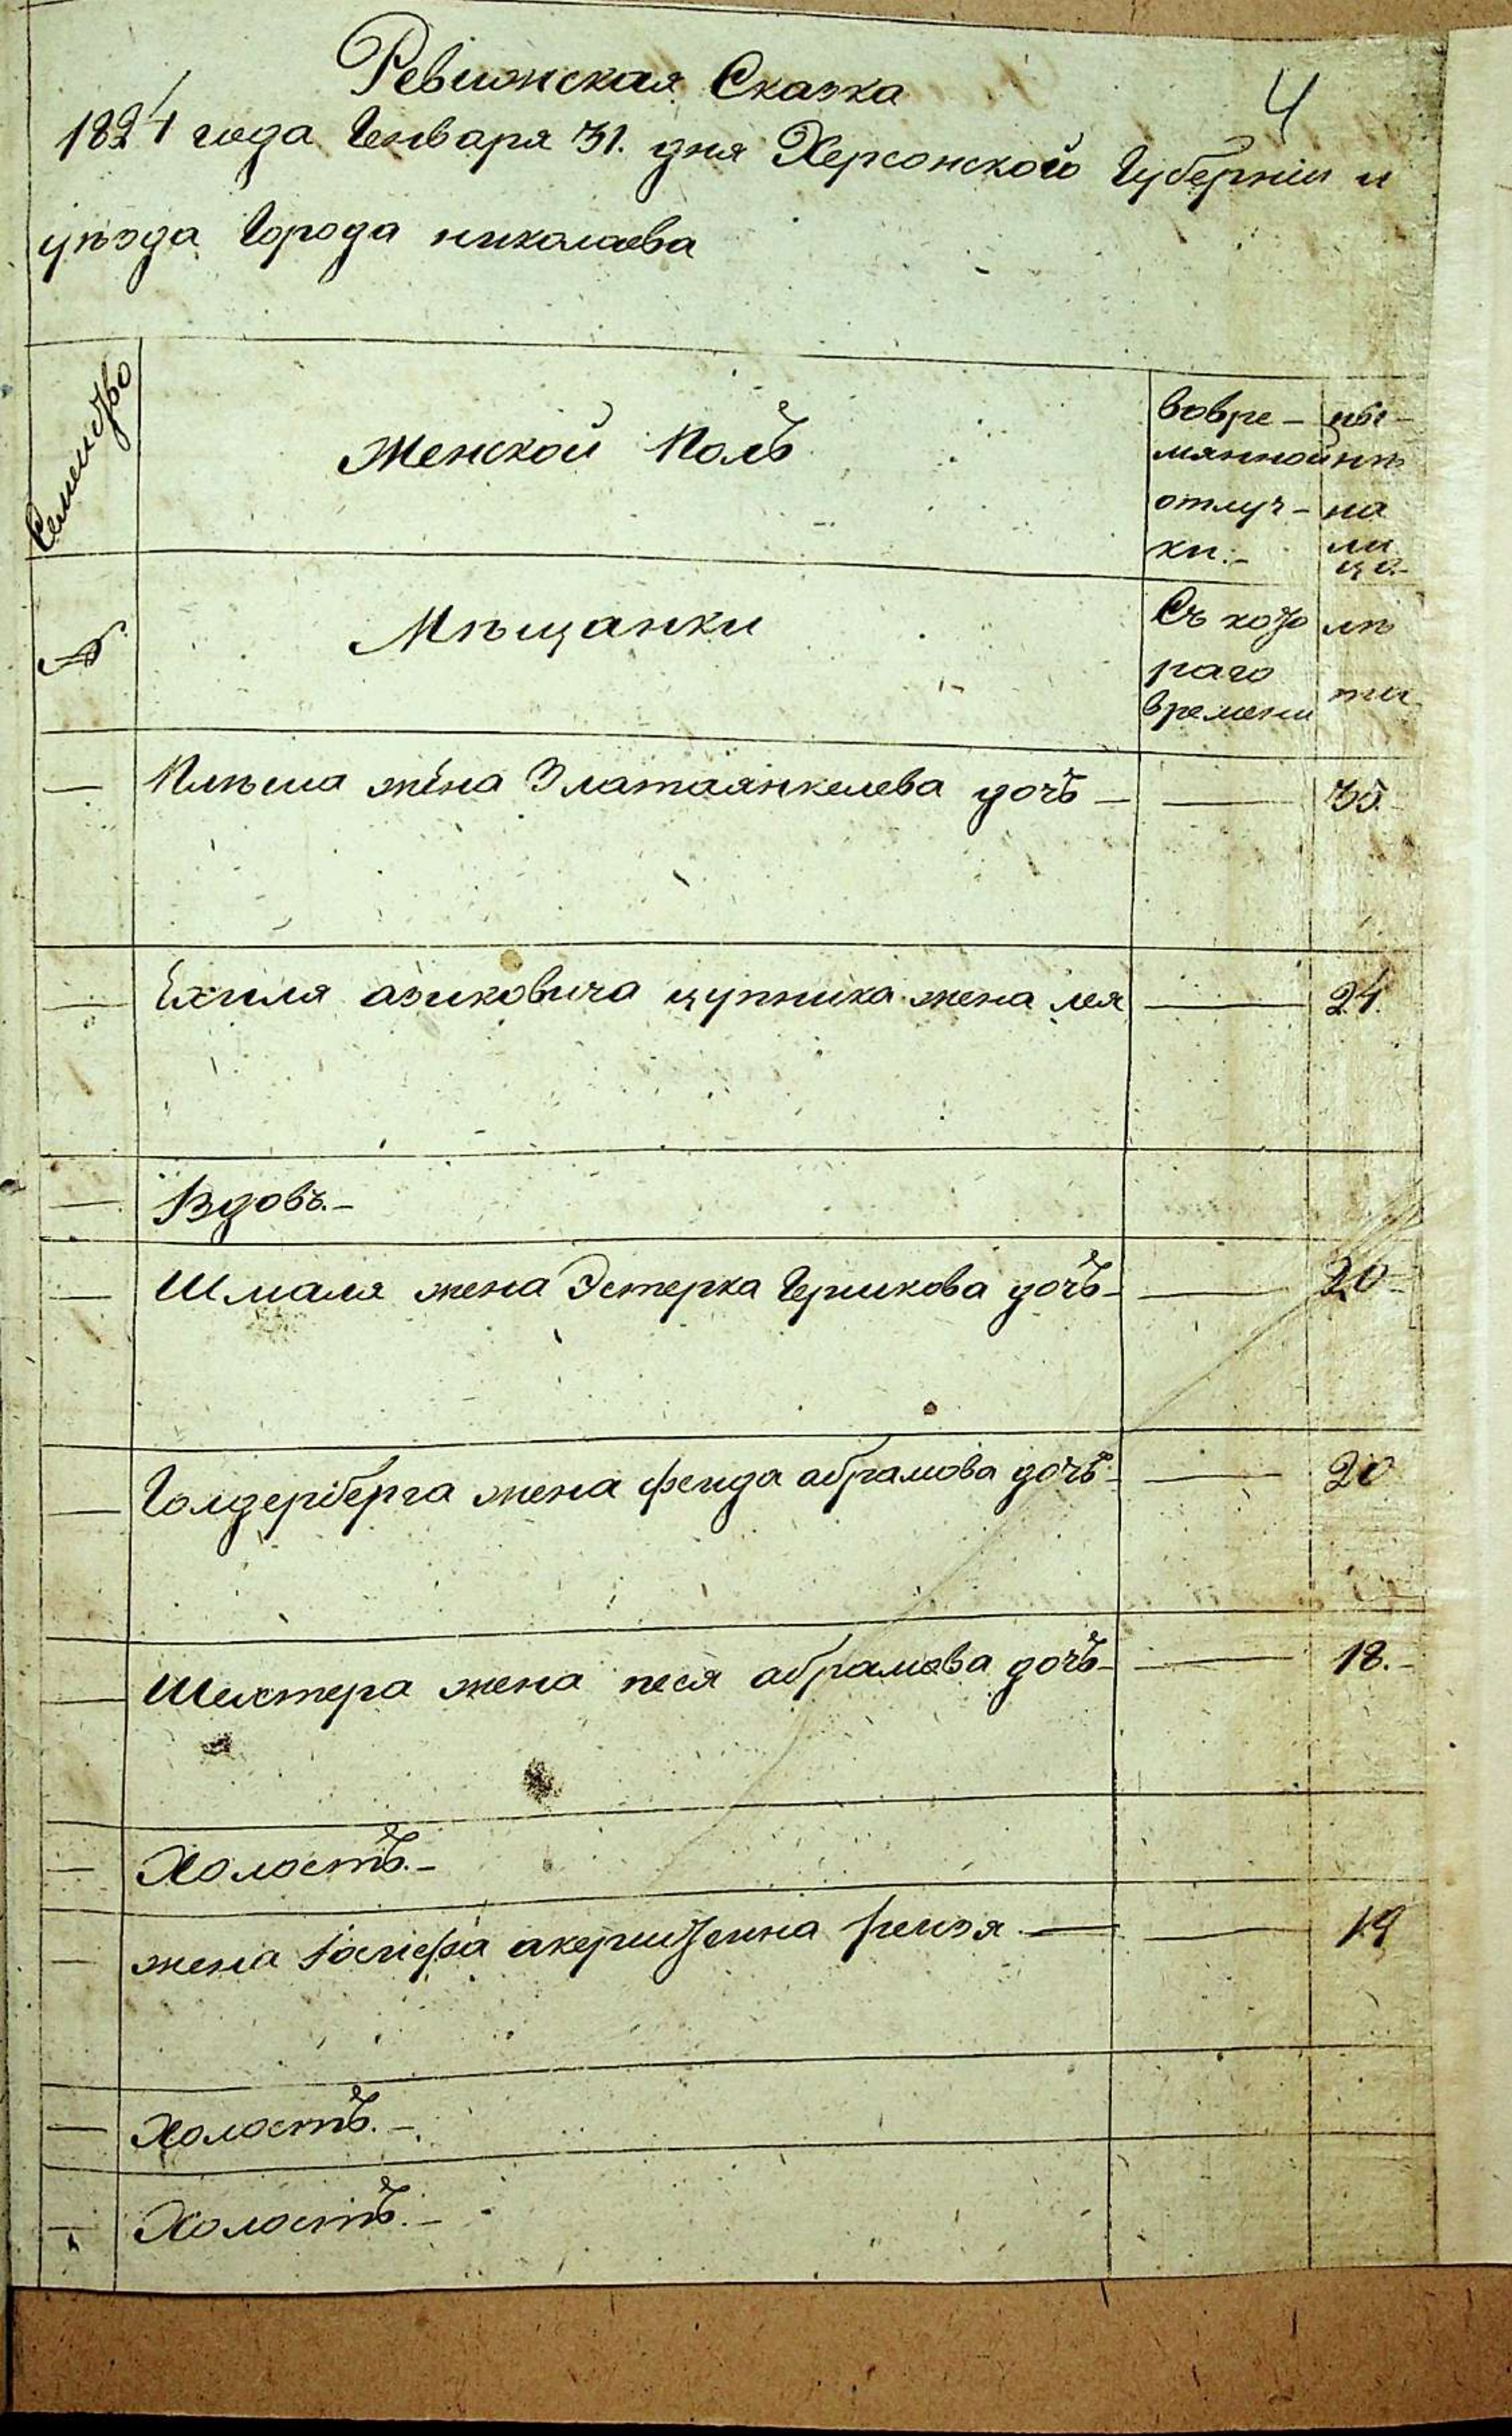 Ревизская Сказка
4
1824 года Генваря 31. дня Херсонской Губернии и
уѣзда Города николаева
Семейство
Женской Полъ
вовре-
мянной
отлуч-
ки.-
ны-
нѣ
на
ли
цо.-
№
Мѣщанки
Съ кото
раго
времени
лѣ
та
— жена Златаянкелева дочъ — — 35.
— Ехиля азиковича цупника жена лея — 24.
— Вдовъ.-
— Шмаля жена Эстерка Гершкова дочъ- — 20-
— Голдерберга жена фейда абрамова дочъ- — 20
— Шехтера жена песя абрамова дочъ- — 18.-
— Холостъ.-
— жена Іосифа акерштейна рейзя — — 19
— Холостъ.-
— Холостъ.-